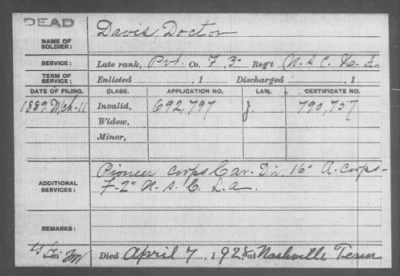 DEAD
NAME OF SOLDIER: Davis, Doctor
SERVICE: Late rank, Pvt Co. F 3" Reg't
TERM OF SERVICE: Enlisted , 1 Discharged , 1
DATE OF FILING. CLASS. APPLICATION NO. LAW. CERTIFICATE NO.
1889 Mch. 11 Invalid, 692,797 J. 790,757
Widow,
Minor,
ADDITIONAL SERVICES: Pioneer Corps Cav. Div. 16" A. Corps-
F-2" U.S.C. L.A.
REMARKS:
Died April 7, 1928 at Nashville Tenn